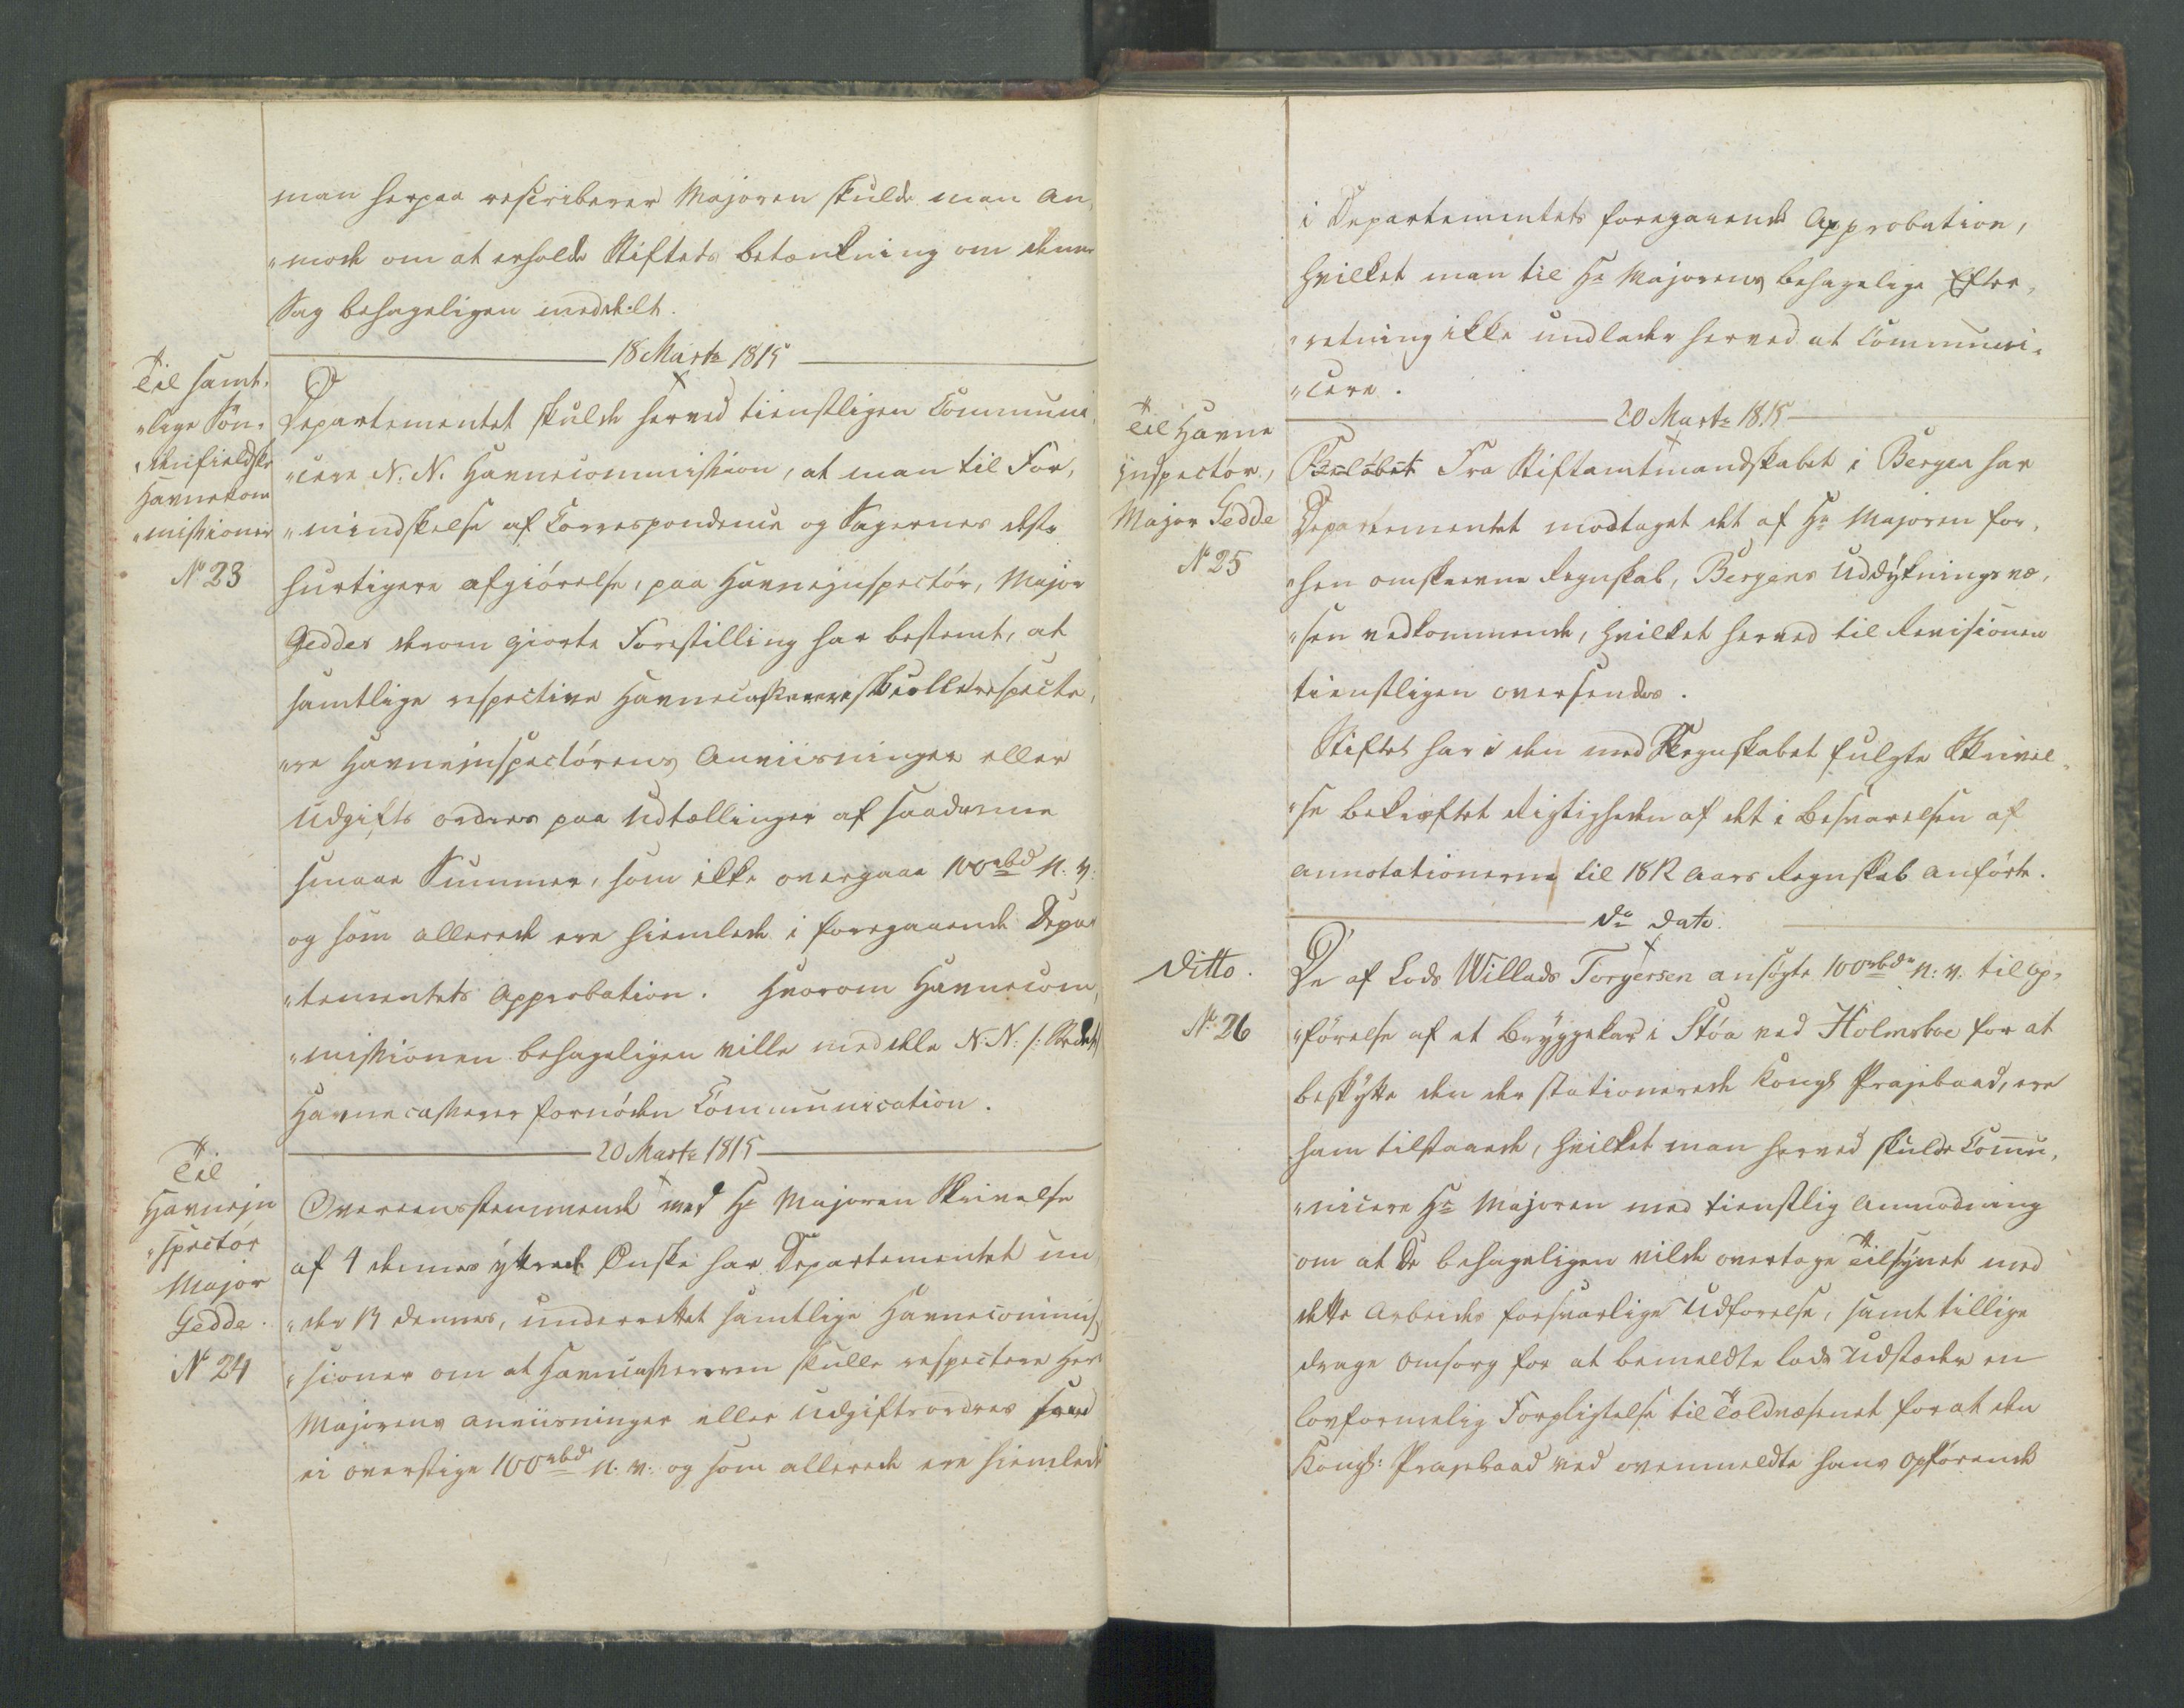 man herpaa rescriberer Majoren skulde man an,
"mode om at erholde Stiftets betænkning om denne
Sag behageligen meddeelt.
18 Marts 1815
Til samt,
"lige Sön,
"denfieldske
Havnekom
"missioner
No 23
Departementet skulde herved tienstligen Communi,
"cere N. N. Havnecommission, at man til For,
"mindskelse af Correspondence og Sagernes desto
hurtigere afgiörelse, paa Havneinspectör, Major
Geddes derom giorte Forestilling har bestemt, at
samtlige respective Havnecasserere skulle respecte,
"re Havneinspectörens Anviisninger eller
Udgifts ordres paa Udtællinger af saadanne
smaae Summer, som ikke overgaae 100 rbd N. V.
og som allerede ere hiemlede i foregaaende Depar
"tementets Approbation. Hvorom Havnecom,
"missionen behageligen ville meddele N. N. /: Stedets
Havnecasserer fornöden Communication.
20 Marts 1815
Til
Havnein
"spectör
Major
Gedde.
No 24
Overeensstemmende med Hr Majoren Skrivelse
af 4 dennes ÿttrede Önske har Departementet un
"der 13 dennes, underrettet samtlige Havnecommis,
"sioner om at Havnecassereren skulle respectere Herr
Majorens anviisninger eller Udgiftsordres
ei overstige 100 rbd N. V. og som allerede ere hiemlede
i Departementets foregaaende Approbation,
hvilket man til Hr Majorens behagelige Efter,
"retning ikke undlader herved at Communi,
"cere.
20 Marts 1815
Til Havne
Inspectör,
Major Gedde
No 25
Beløbet Fra Stiftamtmandskabet i Bergen har
Departementet modtaget det af Hr Majoren for,
"hen omskrevne Regnskab, Bergens Uddÿbningsvæ,
"sen vedkommende, hvilket herved til Revisionen
tienstligen oversendes.
Stiftet har i den med Regnskabet fulgte Skrivel,
"se bekræftet Rigtigheden af det i Besvarelsen af
Annotationerne til 1812 Aars Regnskab anförte.
Do Dato.
Ditto.
No 26
De af Lods Willads Torgersen ansögte 100 rbdr N: V. til Op,
"förelse af et Brÿggekar i Stöa ved Holmsboe for at
beskÿtte den der stationerede Kongl Prajebaad, ere
ham tilstaaede, hvilket man herved skulde Commu,
"nicere Hr Majoren med tienstlig Anmodning
om at De behageligen vilde overtage Tilsÿnet med
dette Arbeides forsvarlige Udförelse, samt tillige
drage Omsorg for at bemeldte Lods Udstæder en
lovformelig Forpligtelse til Toldvæsenet for at den
Kongl: Prajebaad ved ovenmeldte hans Opförende